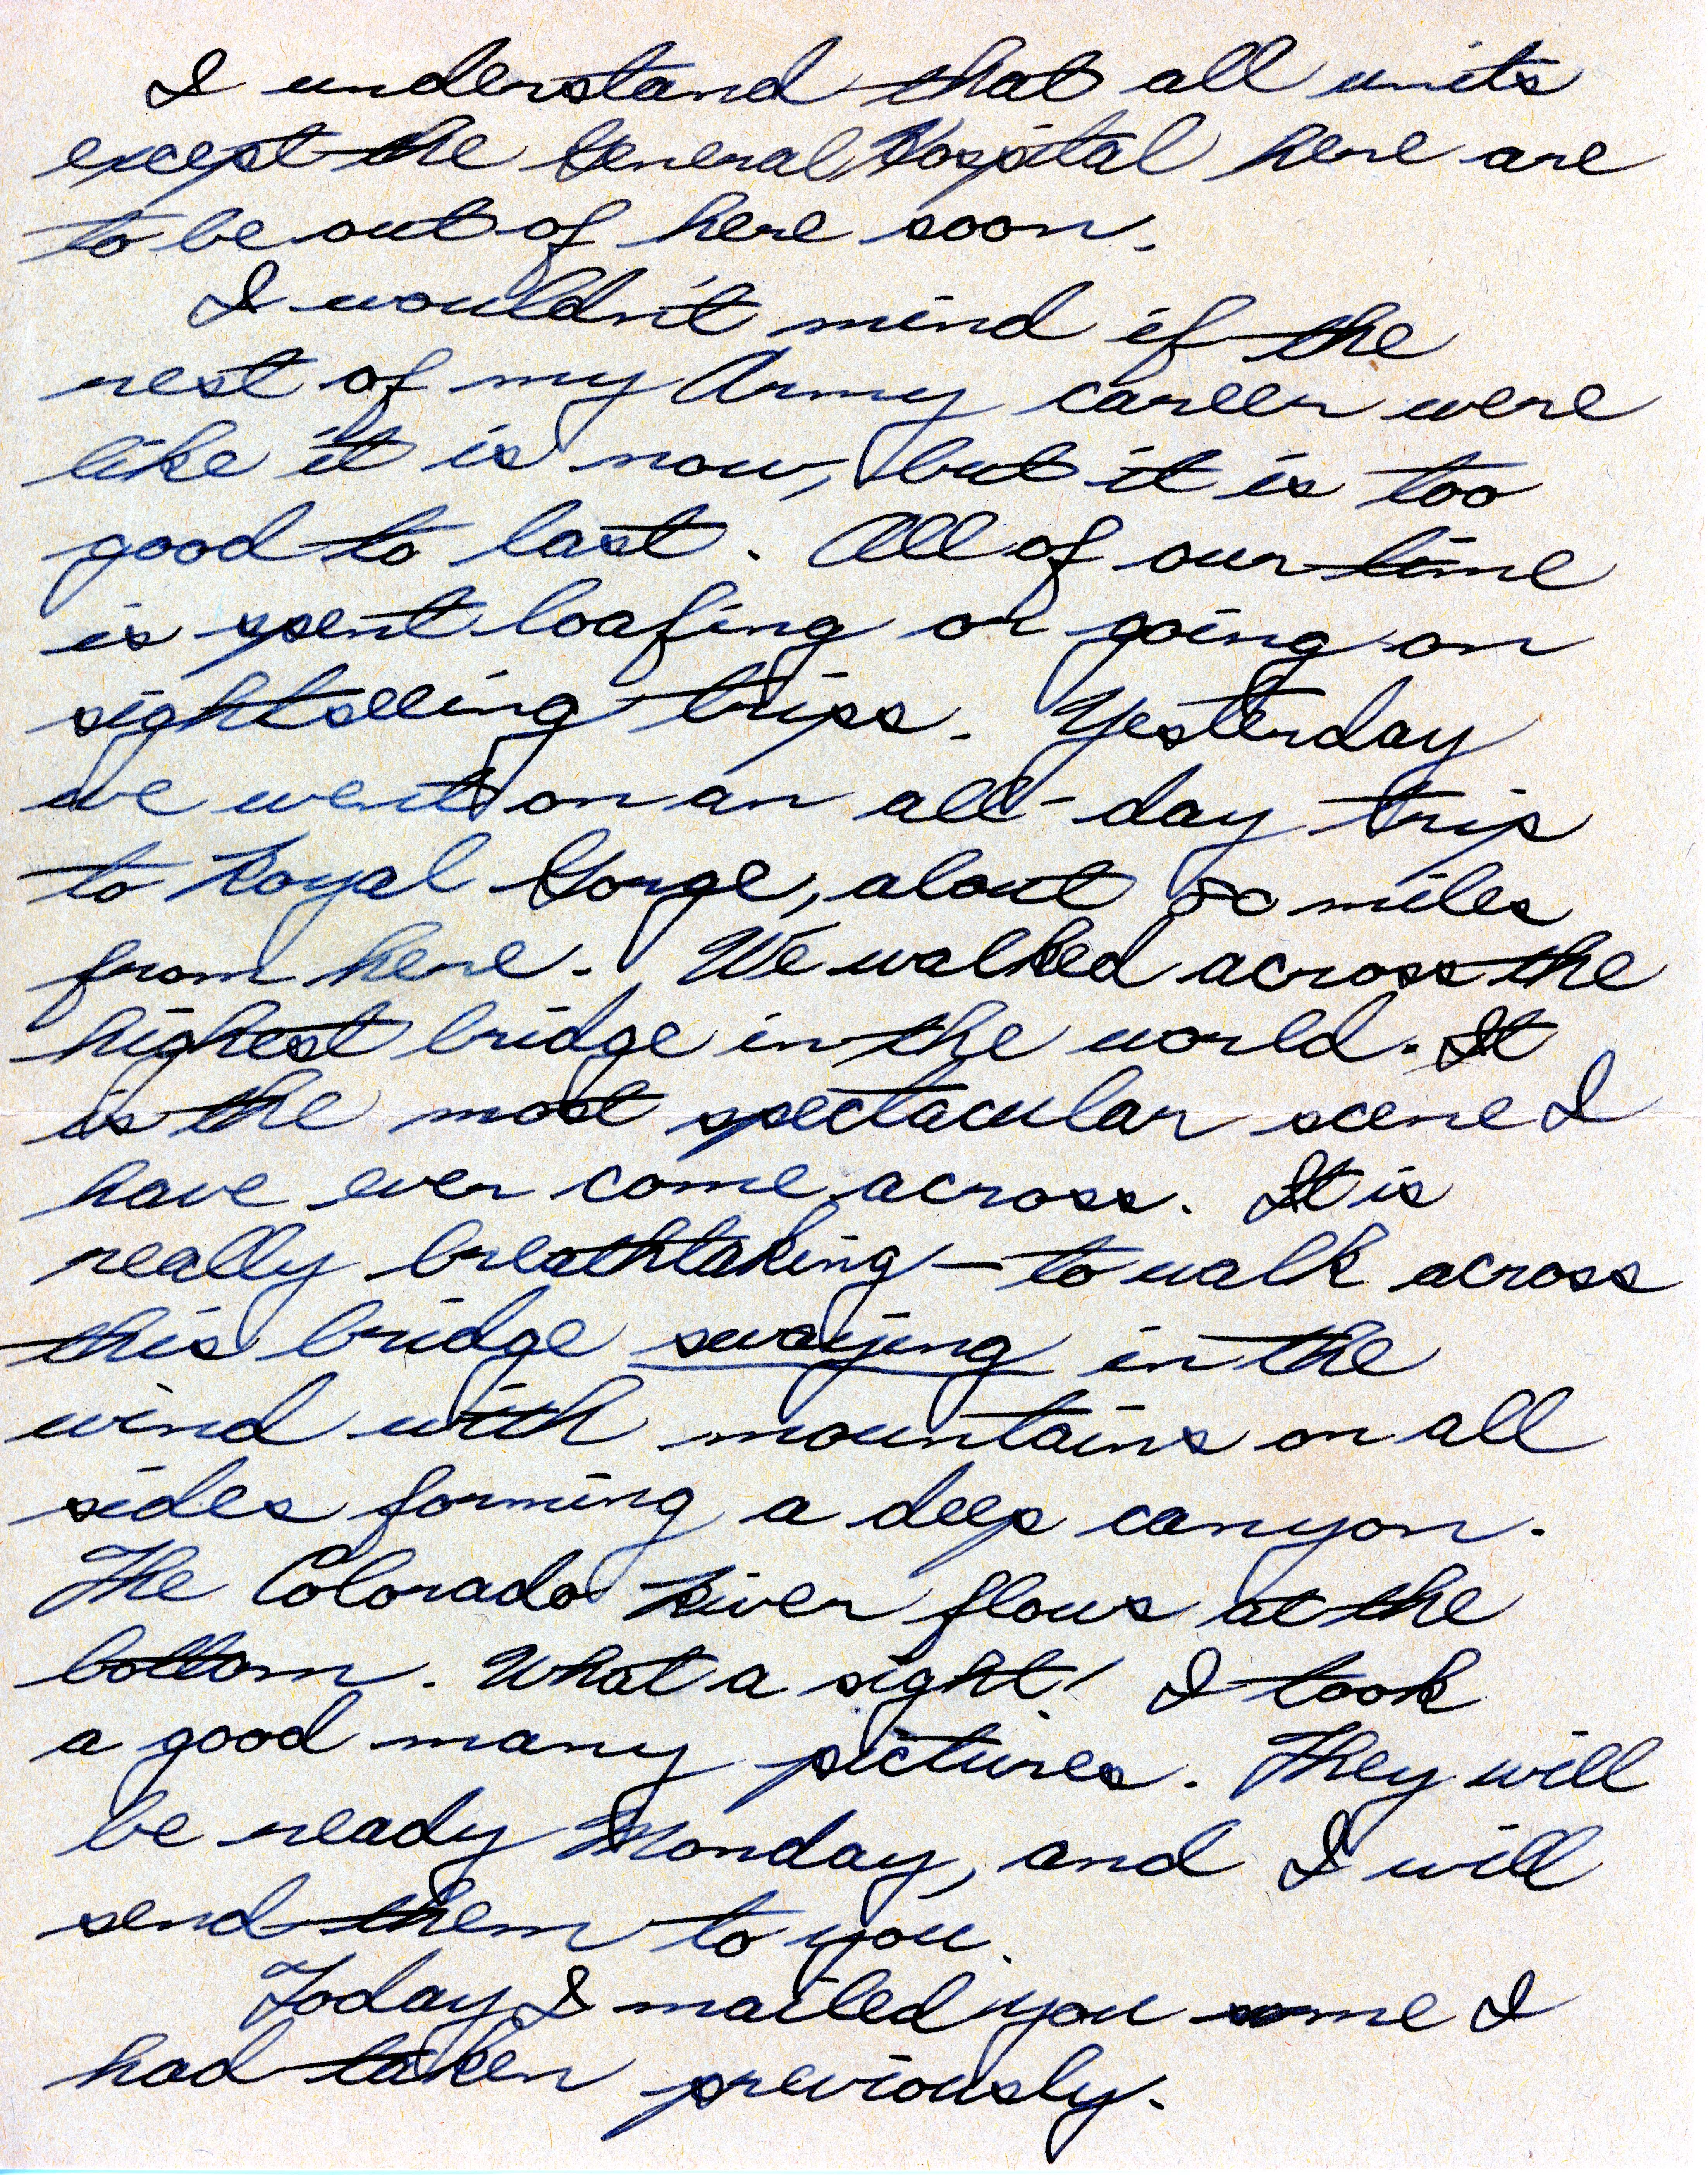 I understand that all units
except the General Hospital here are
to be out of here soon.
I wouldn't mind if the
rest of my Army career were
like it is now, but it is too
good to last. All of our time
is spent loafing or going on
sightseeing trips. Yesterday
we went on an all-day trip
to Royal Gorge, about 50 miles
from here. We walked across the
highest bridge in the world. It
is the most spectacular scene I
have ever come across. It is
really breathtaking - to walk across
this bridge swaying in the
wind with mountains on all
sides forming a deep canyon.
The Colorado River flows at the
bottom. What a sight! I took
a good many pictures. They will
be ready Monday, and I will
send them to you.
Today I mailed you some I
had taken previously.